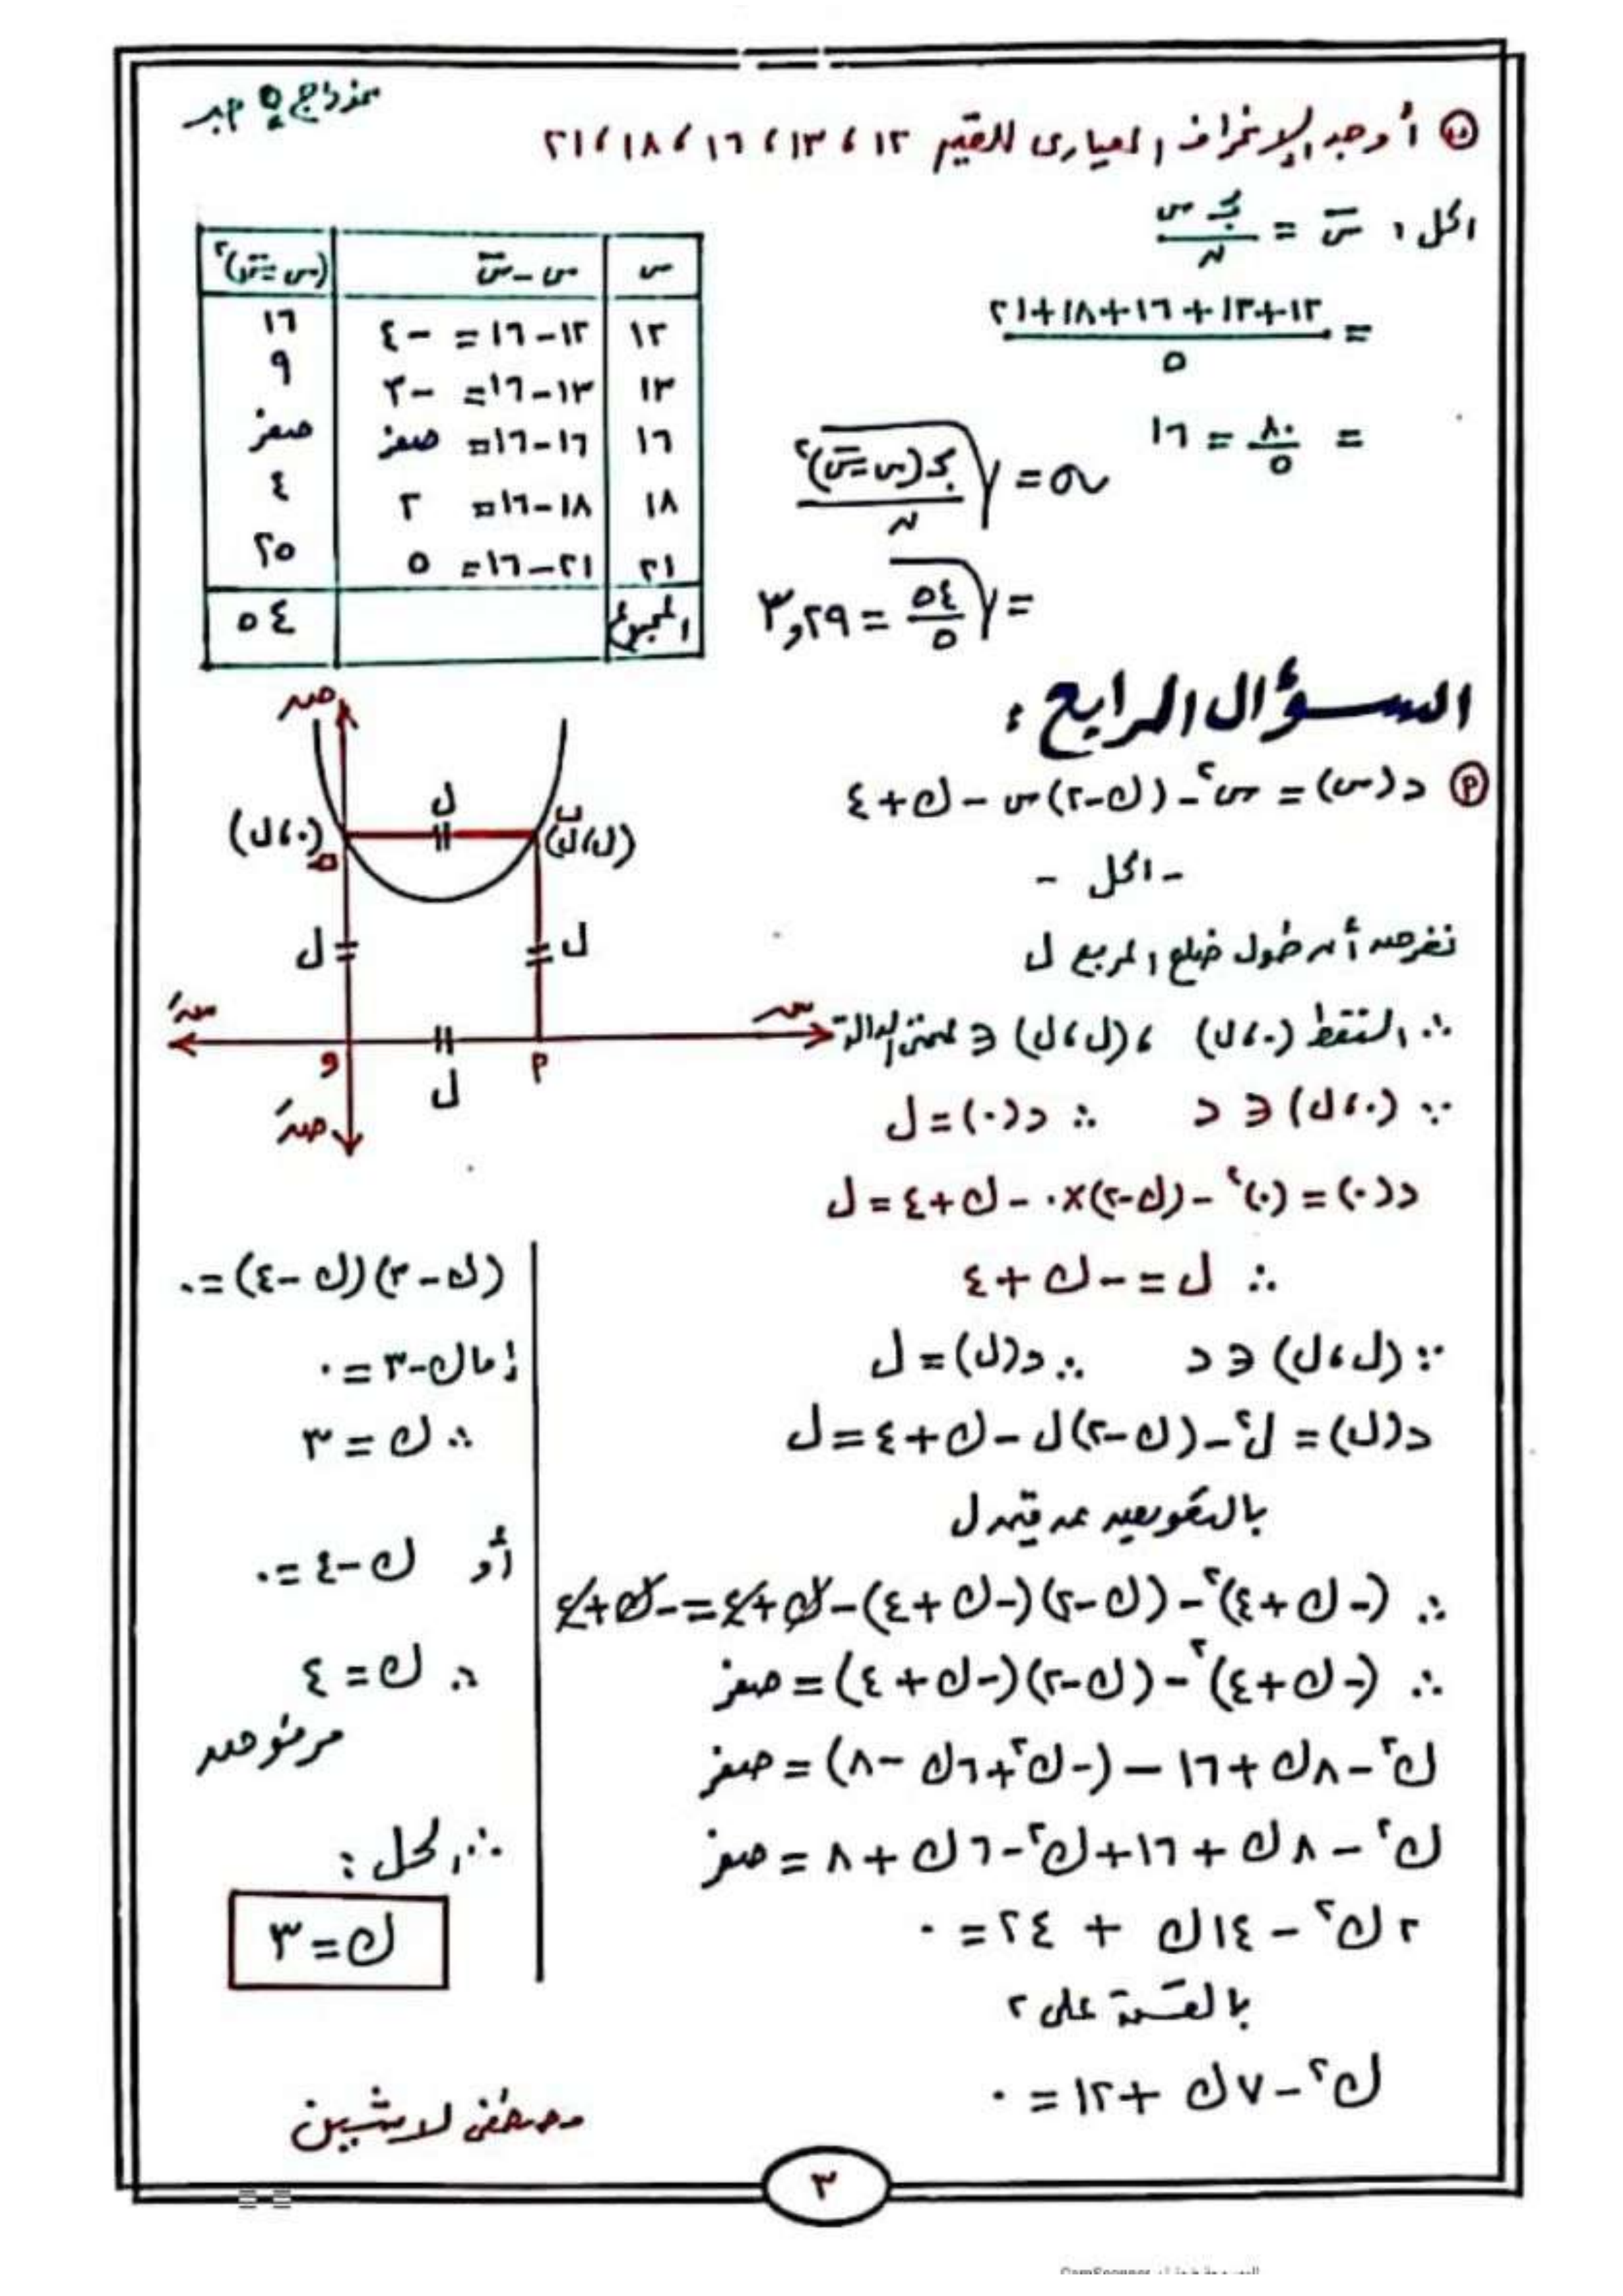 نموذج ٥ جبر
ب أوجد الإنحراف المعيارى للقيم ١٢ ، ١٣ ، ١٦ ، ١٨ ، ٢١
الحل : س̅ = مجـ س / ن
= (١٢+١٣+١٦+١٨+٢١) / ٥
= ٨٠/٥ = ١٦
س | س - س̅ | (س - س̅)²
١٢ | ١٢ - ١٦ = -٤ | ١٦
١٣ | ١٣ - ١٦ = -٣ | ٩
١٦ | ١٦ - ١٦ = صفر | صفر
١٨ | ١٨ - ١٦ = ٢ | ٤
٢١ | ٢١ - ١٦ = ٥ | ٢٥
المجموع | | ٥٤
σ = √(مجـ (س - س̅)² / ن)
= √(٥٤/٥) = ٣,٢٩
السؤال الرابع :
أ د(س) = س² - (ك-٢)س - ك + ٤
- الحل -
نفرض أن طول ضلع المربع ل
∴ النقط (٠،ل) ، (ل،ل) ∈ لمنحنى الدالة
∵ (٠،ل) ∈ د ∴ د(٠) = ل
د(٠) = (٠)² - (ك-٢)×٠ - ك + ٤ = ل
∴ ل = -ك + ٤
∵ (ل،ل) ∈ د ∴ د(ل) = ل
د(ل) = ل² - (ك-٢)ل - ك + ٤ = ل
بالتعويض عن قيمة ل
∴ (-ك+٤)² - (ك-٢)(-ك+٤) - ك + ٤ = -ك + ٤
∴ (-ك+٤)² - (ك-٢)(-ك+٤) = صفر
ك² - ٨ك + ١٦ - (-ك² + ٦ك - ٨) = صفر
ك² - ٨ك + ١٦ + ك² - ٦ك + ٨ = صفر
٢ك² - ١٤ك + ٢٤ = ٠
بالقسمة على ٢
ك² - ٧ك + ١٢ = ٠
صـ
ل
(٠،ل)
جـ
ب
(ل،ل)
ل
ل
سـَ
سـ
و
أ
ل
صـَ
(ك-٣)(ك-٤) = ٠
إما ك-٣ = ٠
∴ ك = ٣
أو ك-٤ = ٠
∴ ك = ٤
مرفوض
∴ الحل :
ك = ٣
مصطفى لاشين
٣